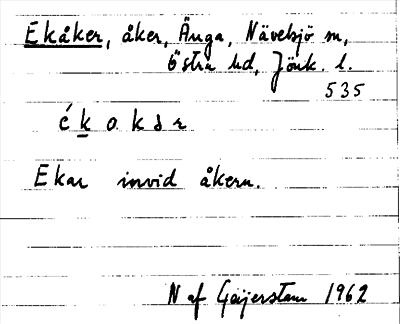 Ekåker, åker, Änga, Nävelsjö sn,
Östra hd, Jönk. l.
535
é k o k ə r
Ekar invid åkern.
N af Geijerstam 1962